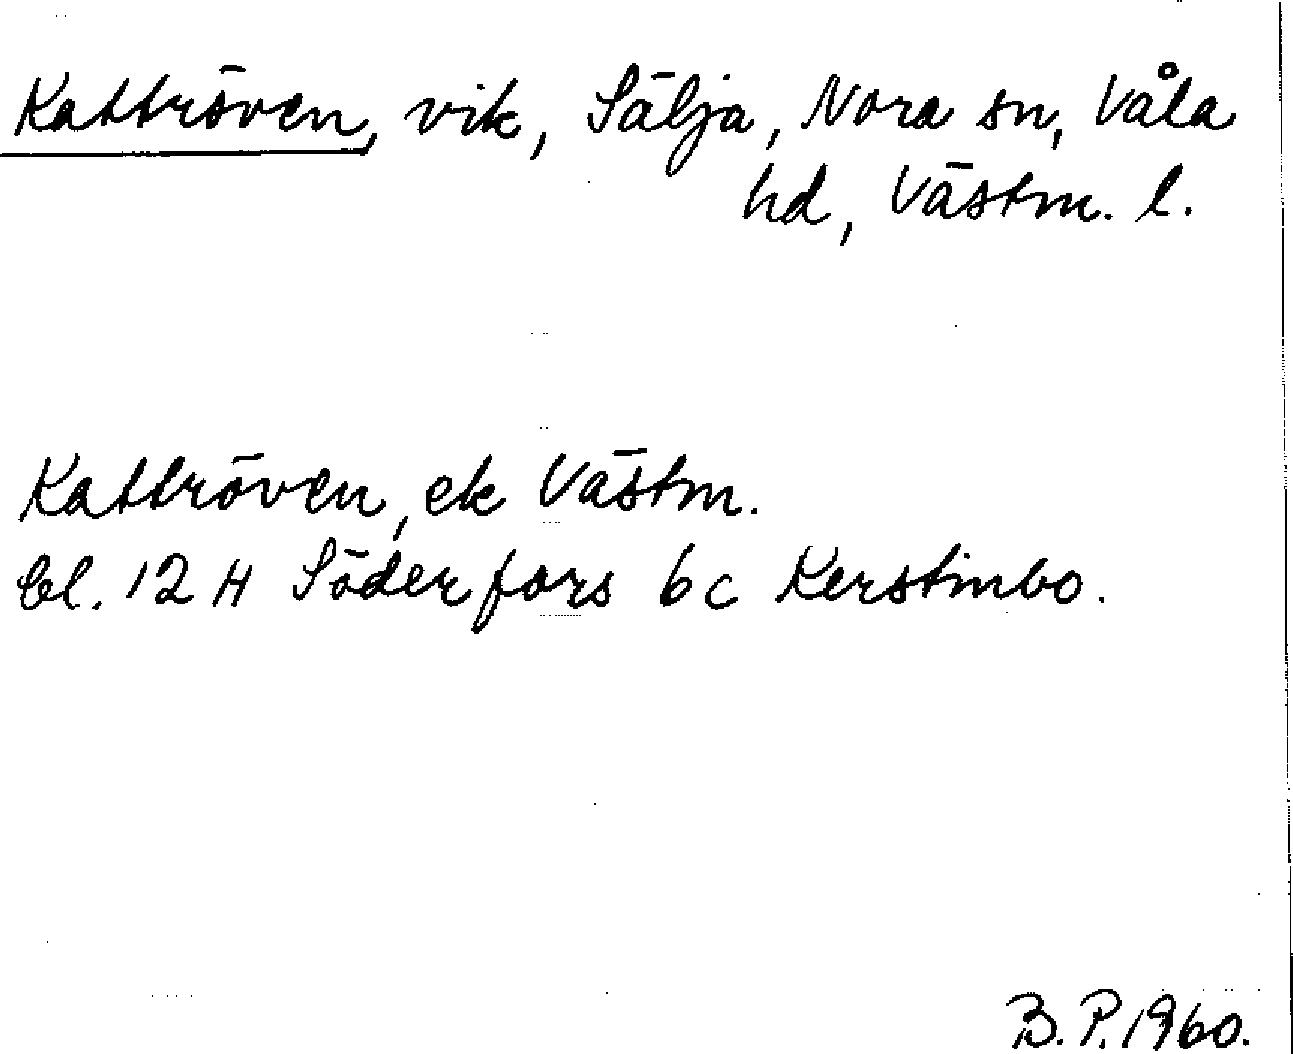 Kattröven, vik, Sälja, Nora sn, Våla
hd, Västm. l.
Kattröven, ek Västm.
bl. 12 H Söderfors 6c Kerstinbo.
B.P. 1960.